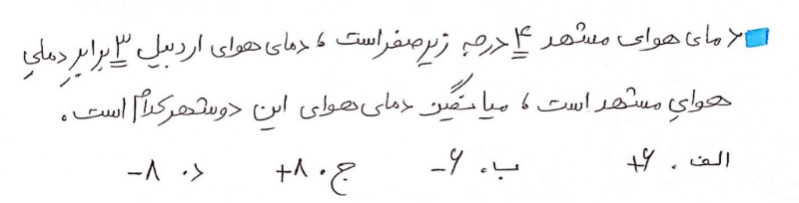 دمای هوای مشهد ۴ درجه زیر صفر است ، دمای هوای اردبیل ۳ برابرِ دمای
هوای مشهد است ، میانگین دمای هوای این دو شهر کدام است .
الف . +۶ ب . -۶ ج . +۸ د . -۸